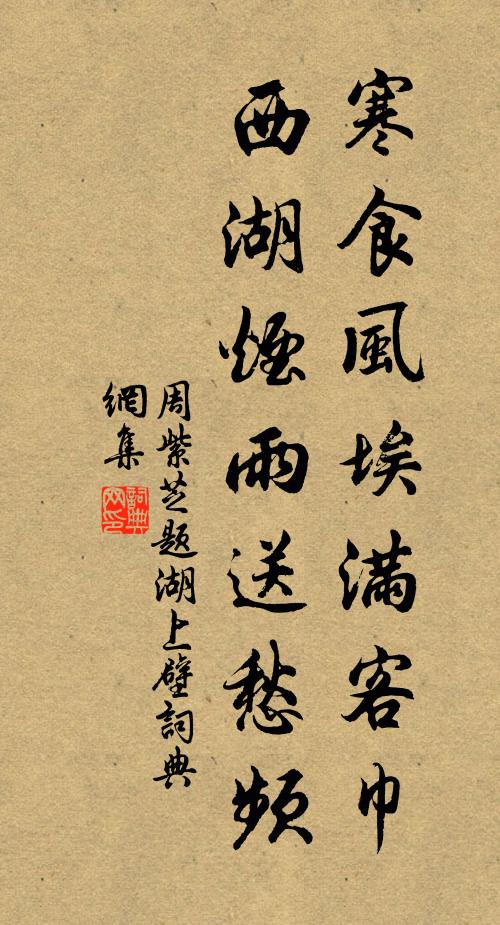 寒食風埃滿客巾
西湖煙雨送愁頻
周紫芝題湖上壁詞典
網集
詞典
网印